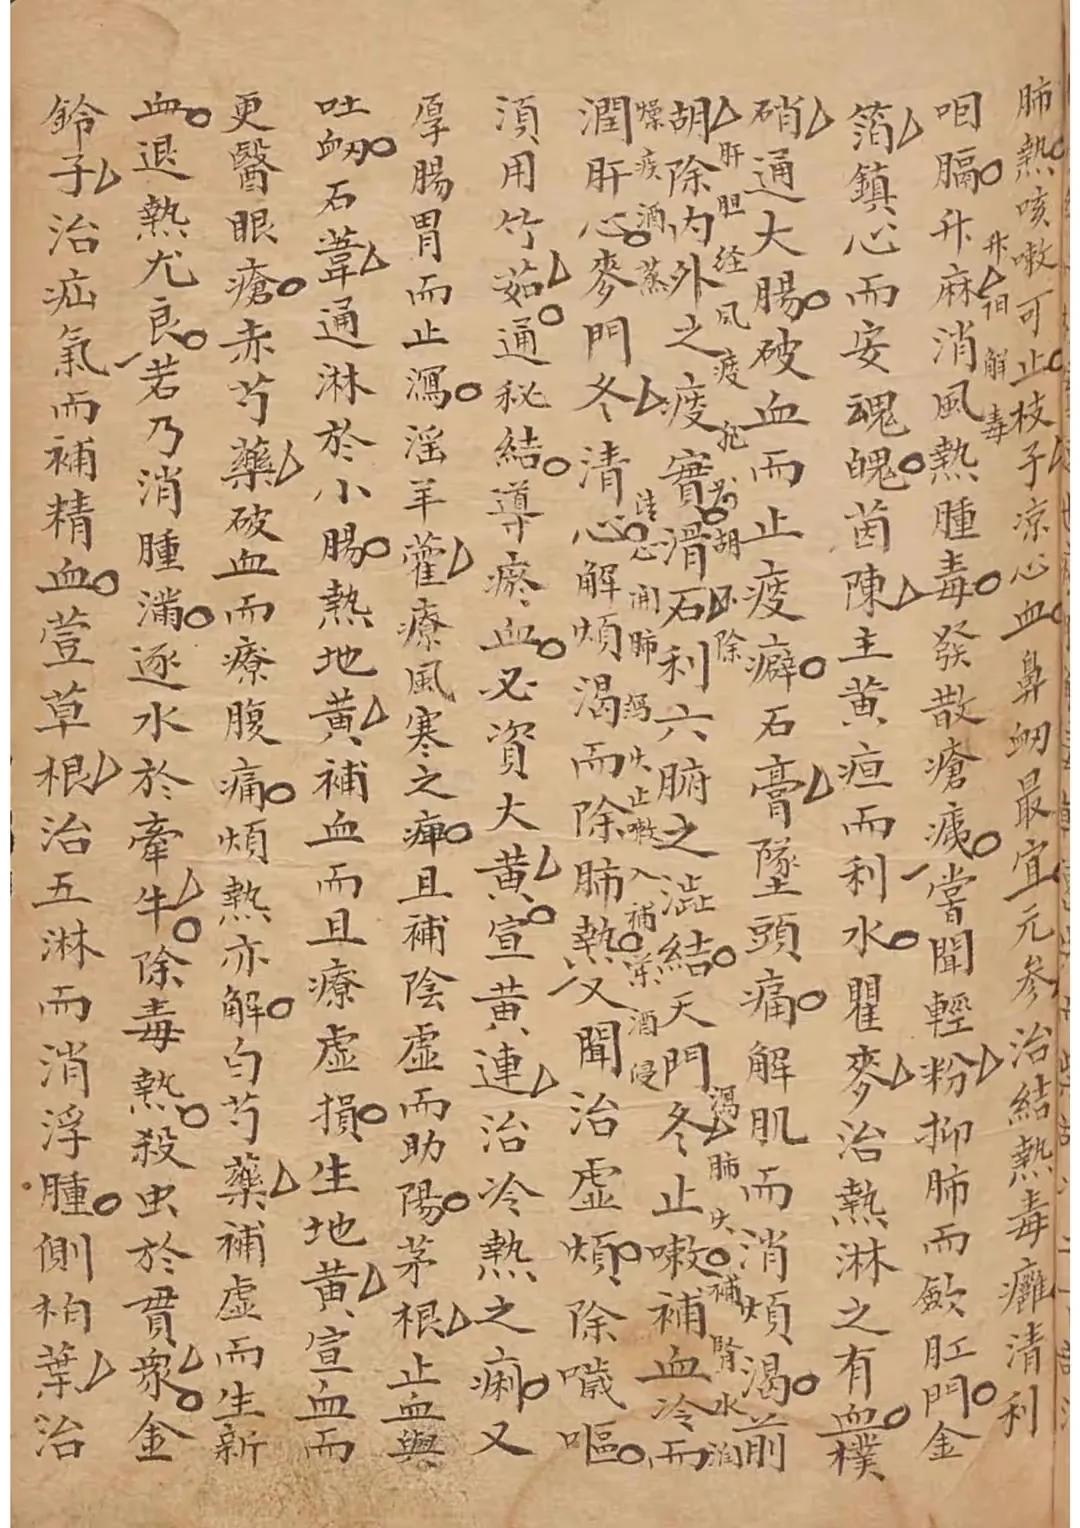 肺熱咳嗽可止枝子凉心血鼻衂最宜元参治結熱毒癰清利
咽膈升麻消風熱腫毒發散瘡痍嘗聞輕粉抑肺而歛肛門金
箔鎮心而安魂魄茵陳主黄疸而利水瞿麥治熱淋之有血樸
硝通大腸破血而止疫癖石膏墜頭痛解肌而消煩渴前
胡除内外之痰實滑石利六腑之澁結天門冬止嗽補血冷而
潤肝心麥門冬清心解煩渴而除肺熱又聞治虚煩除噦嘔
須用竹茹通秘結導瘀血必資大黄宣黄連治冷熱之痢又
厚腸胃而止瀉淫羊藿療風寒之痺且補陰虚而助陽茅根止血與
吐衂石葦通淋於小腸熟地黄補血而且療虚損生地黄宣血而
更醫眼瘡赤芍藥破血而療腹痛煩熱亦解白芍藥補虚而生新
血退熱尤良若乃消腫滿逐水於牽牛除毒熱殺虫於貫衆金
鈴子治疝氣而補精血萱草根治五淋而消浮腫側柏葉治